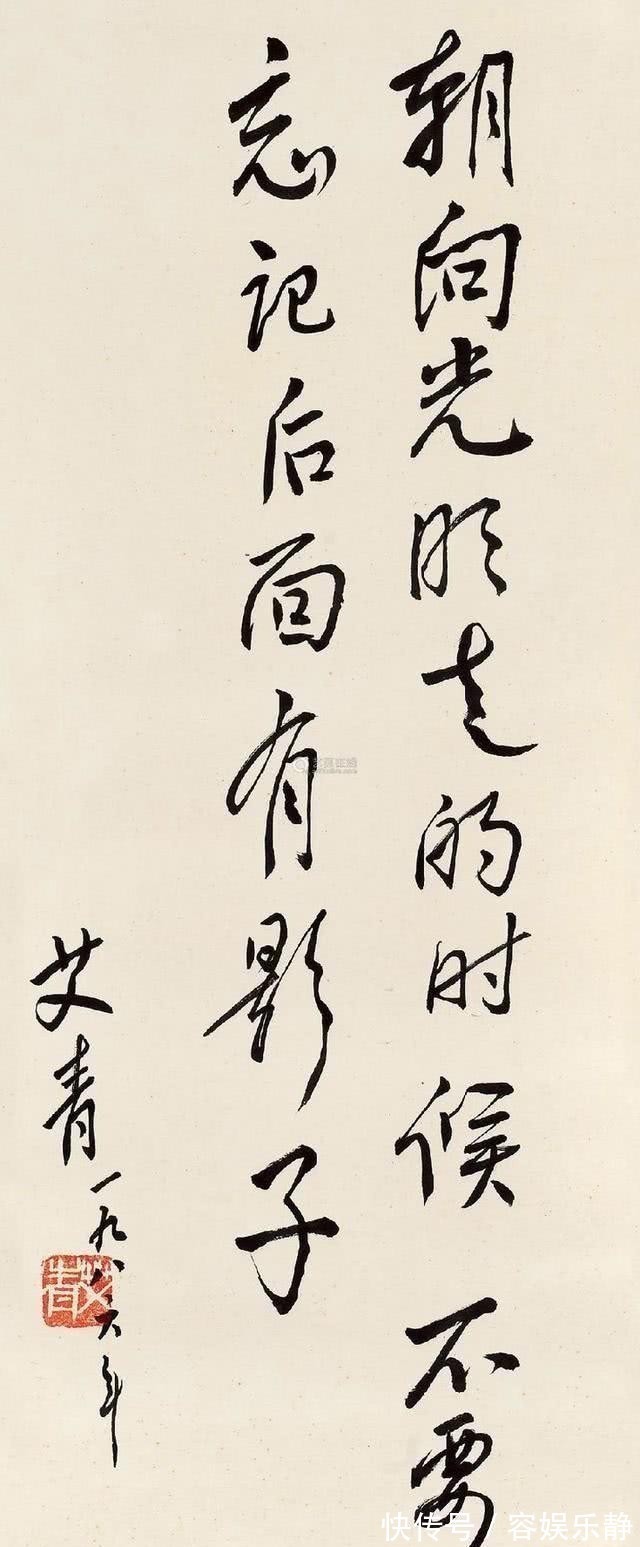 朝向光明走的时候不要
忘记后面有影子
艾青一九八六年
艾青
快传号/容娱乐静